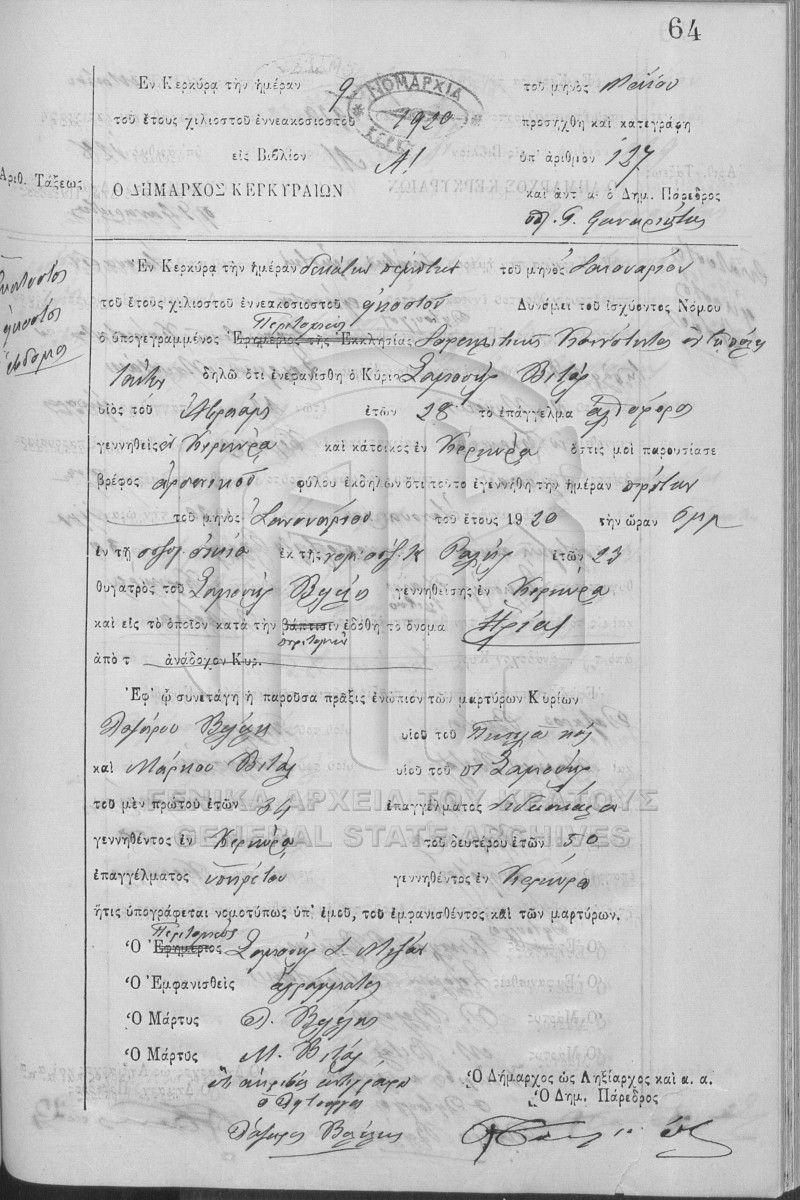 64
Ἐν Κερκύρᾳ τὴν ἡμέραν 9 τοῦ μηνὸς Μαΐου
τοῦ ἔτους χιλιοστοῦ ἐννεακοσιοστοῦ 1920 προσήχθη καὶ κατεγράφη
εἰς Βιβλίον Α! ὑπ' ἀριθμὸν 127
Ἀριθ. Τάξεως
Ο ΔΗΜΑΡΧΟΣ ΚΕΡΚΥΡΑΙΩΝ καὶ ἀντ' α. ὁ Δημ. Πάρεδρος
ΝΟΜΑΡΧΙΑ
Ἐν Κερκύρᾳ τὴν ἡμέραν δεκάτην πέμπτην τοῦ μηνὸς Ἰανουαρίου
τοῦ ἔτους χιλιοστοῦ ἐννεακοσιοστοῦ εἰκοστοῦ Δυνάμει τοῦ ἰσχύοντος Νόμου
Περιτομεὺς
ὁ ὑπογεγραμμένος Ἐφημέριος τῆς Ἐκκλησίας Ἰσραηλιτικῆς Κοινότητος ἐν τῇ πόλει
ἑκατοστὸς
εἰκοστὸς
ἕβδομος
ταύτῃ δηλῶ ὅτι ἐνεφανίσθη ὁ Κύριος Σαμουὴλ Βιτάλ
υἱὸς τοῦ Ἀβραὰμ ἐτῶν 28 τὸ ἐπάγγελμα ἀχθοφόρος
γεννηθεὶς ἐν Κερκύρᾳ καὶ κάτοικος ἐν Κερκύρᾳ ὅστις μοὶ παρουσίασε
βρέφος ἀρσενικοῦ φύλου ἐκδηλῶν ὅτι τοῦτο ἐγεννήθη τὴν ἡμέραν πρώτην
τοῦ μηνὸς Ἰανουαρίου τοῦ ἔτους 1920 τὴν ὥραν 6 μμ
ἐν τῇ οἰκίᾳ ἐκ τῆς Ραχὴλ ἐτῶν 23
θυγατρὸς τοῦ Σαμουὴλ Βελέλη γεννηθείσης ἐν Κερκύρᾳ
καὶ εἰς τὸ ὁποῖον κατὰ τὴν βάπτισιν ἐδόθη τὸ ὄνομα
περιτομὴν
ἀπὸ τ ἀνάδοχον Κυρ.
Ἐφ' ᾧ συνετάγη ἡ παροῦσα πρᾶξις ἐνώπιον τῶν μαρτύρων Κυρίων
Λαζάρου Βελέλη υἱοῦ τοῦ
καὶ Μάρκου Βιτάλ υἱοῦ τοῦ Σαμουὴλ
τοῦ μὲν πρώτου ἐτῶν 34 ἐπαγγέλματος διδασκάλου
ΓΕΝΙΚΑ ΑΡΧΕΙΑ ΤΟΥ ΚΡΑΤΟΥΣ
GENERAL STATE ARCHIVES
γεννηθέντος ἐν Κερκύρᾳ τοῦ δευτέρου ἐτῶν 50
ἐπαγγέλματος ὑπηρέτου γεννηθέντος ἐν Κερκύρᾳ
ἥτις ὑπογράφεται νομοτύπως ὑπ' ἐμοῦ, τοῦ ἐμφανισθέντος καὶ τῶν μαρτύρων.
Περιτομεὺς
Ὁ Ἐφημέριος Σαμουὴλ
Ὁ Ἐμφανισθεὶς ἀγράμματος
Ὁ Μάρτυς Λ. Βελέλης
Ὁ Μάρτυς Μ. Βιτάλ
Ὁ Δήμαρχος ὡς Ληξίαρχος καὶ α. α.
Ὁ Δημ. Πάρεδρος
Λάζαρος Βελέλης